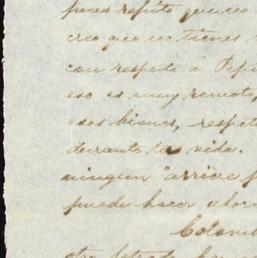 pues repito que no
creo que un tienes
con respecto á Pepe
eso es muy remoto,
esos bienes, respeta
durante tu vida.
ningun "arrière p
puede hacer ahora
Colom
otro letrado